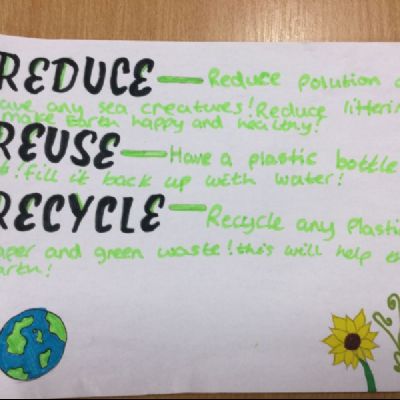 REDUCE — Reduce polution
any sea creatures! Reduce
make Earth happy and healthy!
REUSE — Have a plastic bottle
! fill it back up with water!
RECYCLE — Recycle any Plastic
and green waste! this will help